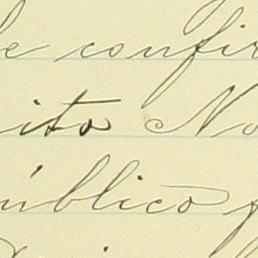 de confir
ito No
úblico f